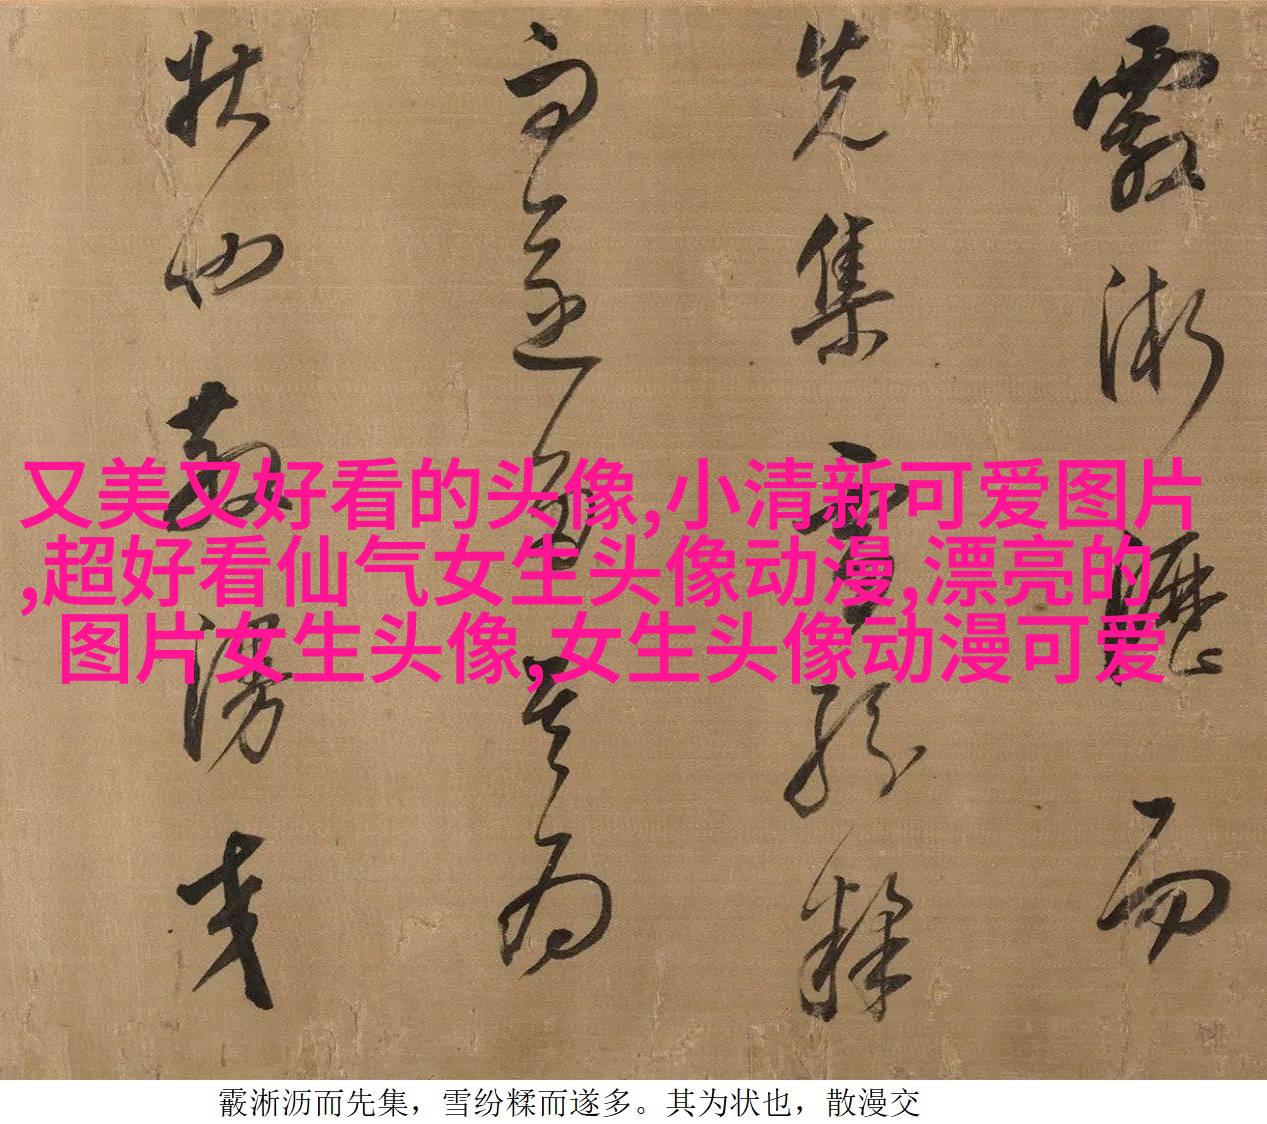 霰淅瀝而
先集雪紛糅
而遂多其為
狀也散漫交
又美又好看的头像,小清新可爱图片
,超好看仙气女生头像动漫,漂亮的
图片女生头像,女生头像动漫可爱
霰淅沥而先集，雪纷糅而遂多。其为状也，散漫交